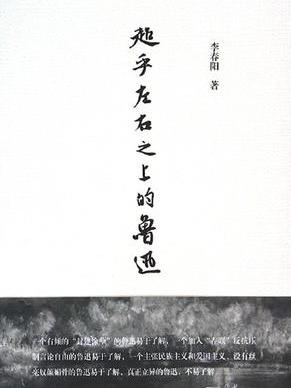 李春阳 著
超乎左右之上的鲁迅
一个有 的“封建 ”的鲁迅易于了解，一个加入“左联”反抗压
制言论自由的鲁迅易于了解，一个主张民族主义和爱国主义、没有丝
毫奴颜媚骨的鲁迅易于了解，真正立异的鲁迅，不易了解